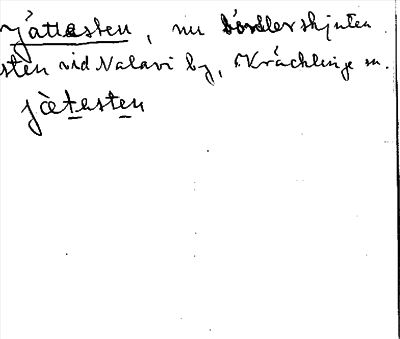 Jättesten, nu sönderskjuten
sten vid Nalavi by, Kräcklinge sn.
jä̀testen